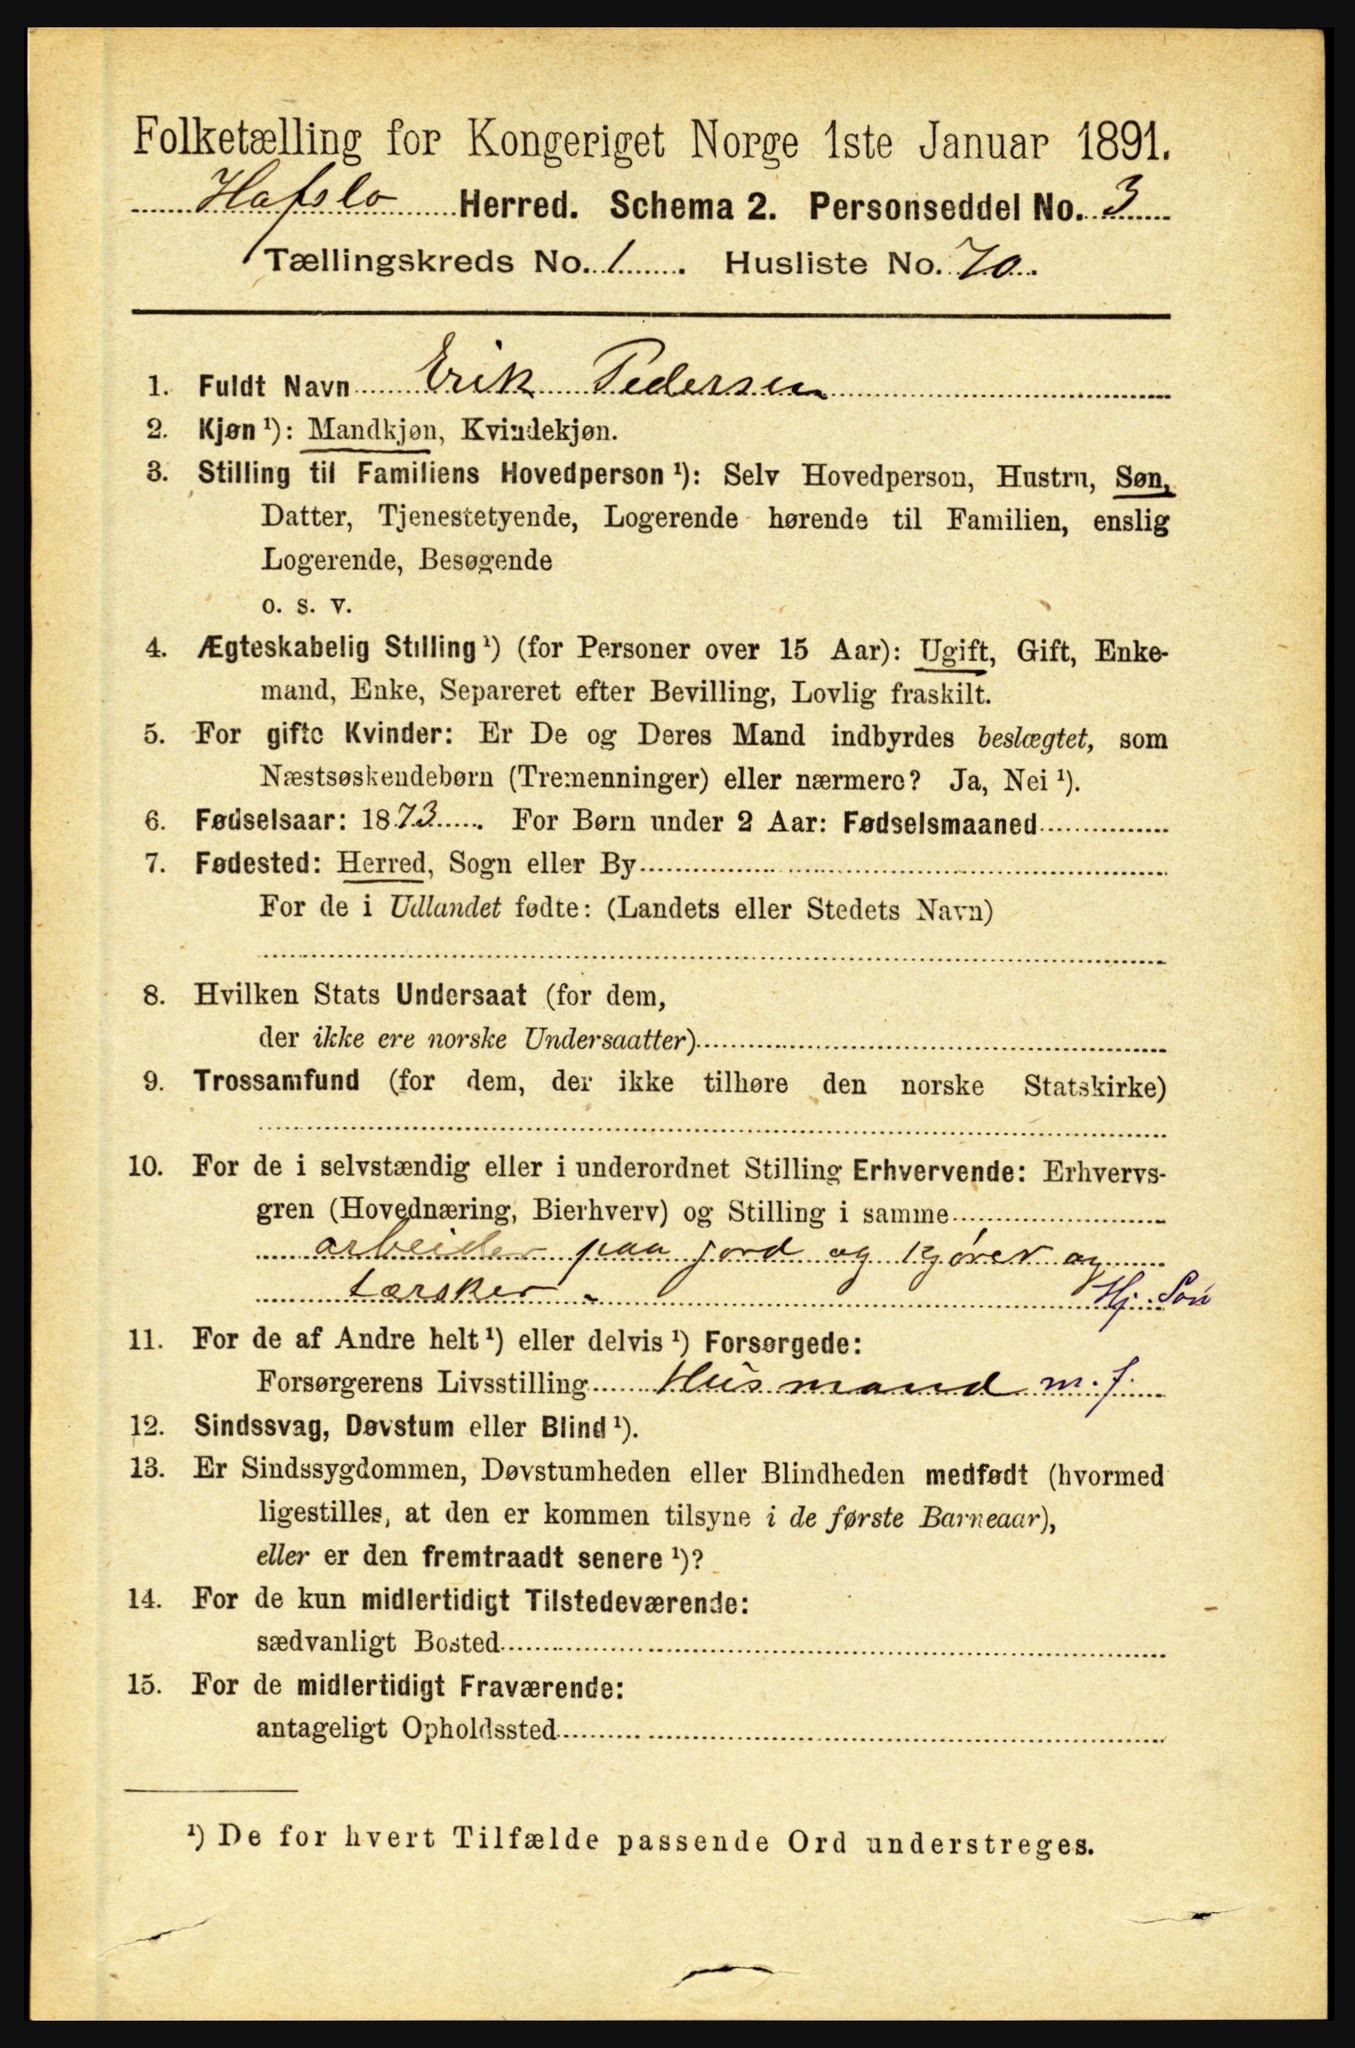 Folketælling for Kongeriget Norge 1ste Januar 1891.
Hafslo Herred. Schema 2. Personseddel No. 3
Tællingskreds No. 1. Husliste No. 70.
1. Fuldt Navn Erik Pedersen
2. Kjøn ¹): Mandkjøn, Kvindekjøn.
3. Stilling til Familiens Hovedperson ¹): Selv Hovedperson, Hustru, Søn,
Datter, Tjenestetyende, Logerende hørende til Familien, enslig
Logerende, Besøgende
o. s. v.
4. Ægteskabelig Stilling ¹) (for Personer over 15 Aar): Ugift, Gift, Enke-
mand, Enke, Separeret efter Bevilling, Lovlig fraskilt.
5. For gifte Kvinder: Er De og Deres Mand indbyrdes beslægtet, som
Næstsøskendebørn (Tremenninger) eller nærmere? Ja, Nei ¹).
6. Fødselsaar: 1873. For Børn under 2 Aar: Fødselsmaaned
7. Fødested: Herred, Sogn eller By
For de i Udlandet fødte: (Landets eller Stedets Navn)
8. Hvilken Stats Undersaat (for dem,
der ikke ere norske Undersaatter)
9. Trossamfund (for dem, der ikke tilhøre den norske Statskirke)
10. For de i selvstændig eller i underordnet Stilling Erhvervende: Erhvervs-
gren (Hovednæring, Bierhverv) og Stilling i samme
arbeider paa jord og kjører og
tærsker - Hj. Søn
11. For de af Andre helt ¹) eller delvis ¹) Forsørgede:
Forsørgerens Livsstilling Husmand m. j.
12. Sindssvag, Døvstum eller Blind ¹).
13. Er Sindssygdommen, Døvstumheden eller Blindheden medfødt (hvormed
ligestilles, at den er kommen tilsyne i de første Barneaar),
eller er den fremtraadt senere ¹)?
14. For de kun midlertidigt Tilstedeværende:
sædvanligt Bosted
15. For de midlertidigt Fraværende:
antageligt Opholdssted
¹) De for hvert Tilfælde passende Ord understreges.